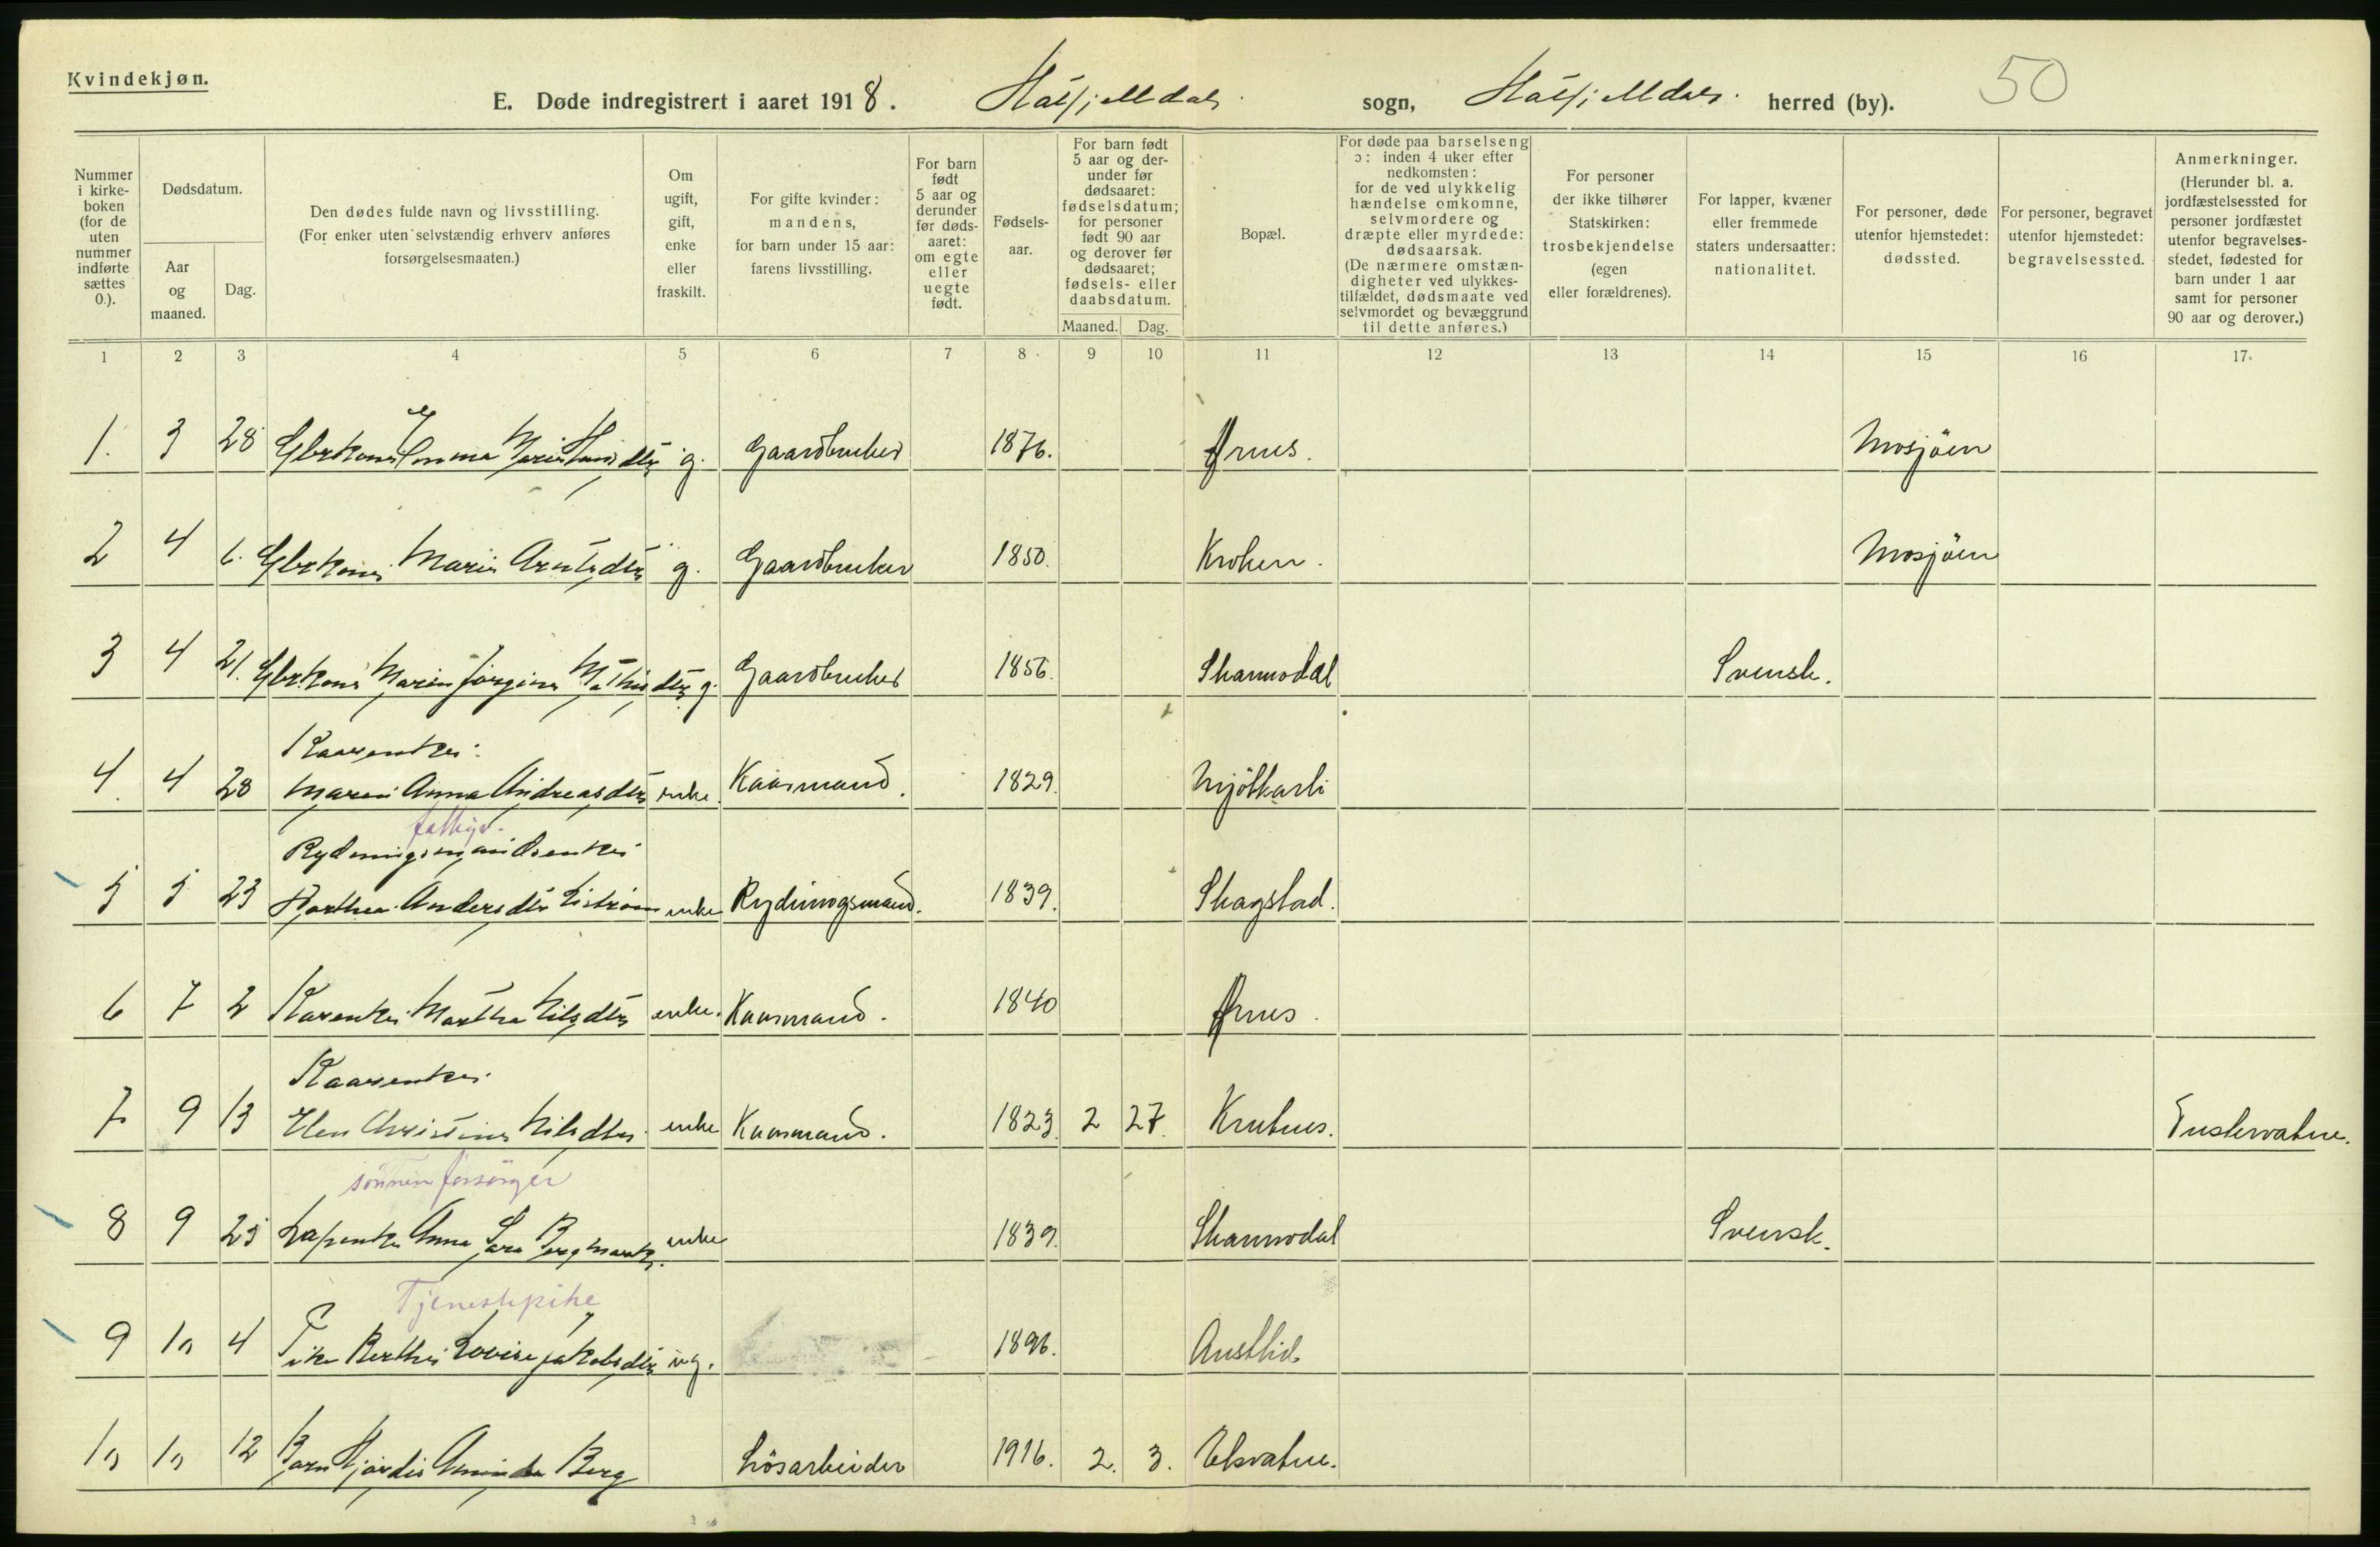 Kvindekjøn.
E. Døde indregistrert i aaret 1918. Hatfjelldals sogn, Hatfjelldals herred (by). 50
Nummer i kirkeboken (for de uten nummer indførte sættes 0.).
Dødsdatum.
Aar og maaned.
Dag.
Den dødes fulde navn og livsstilling. (For enker uten selvstændig erhverv anføres forsørgelsesmaaten.)
Om ugift, gift, enke eller fraskilt.
For gifte kvinder: mandens, for barn under 15 aar: farens livsstilling.
For barn født 5 aar og derunder før dødsaaret: om egte eller uegte født.
Fødselsaar.
For barn født 5 aar og derunder før dødsaaret: fødselsdatum; for personer født 90 aar og derover før dødsaaret; fødsels- eller daabsdatum.
Maaned. Dag.
Bopæl.
For døde paa barselseng ɔ: inden 4 uker efter nedkomsten: for de ved ulykkelig hændelse omkomne, selvmordere og dræpte eller myrdede: dødsaarsak. (De nærmere omstændigheter ved ulykkestilfældet, dødsmaate ved selvmordet og bevæggrund til dette anføres.)
For personer der ikke tilhører Statskirken: trosbekjendelse (egen eller forældrenes).
For lapper, kvæner eller fremmede staters undersaatter: nationalitet.
For personer, døde utenfor hjemstedet: dødssted.
For personer, begravet utenfor hjemstedet: begravelsessted.
Anmerkninger. (Herunder bl. a. jordfæstelsessted for personer jordfæstet utenfor begravelsesstedet, fødested for barn under 1 aar samt for personer 90 aar og derover.)
1 2 3 4 5 6 7 8 9 10 11 12 13 14 15 16 17.
1. 3 28 Gbrkone Emma Marie Hansdtr g. Gaardbruker 1876. Arnes. Mosjöen
2 4 6. Gbrkone Marie Arntsdtr g. Gaardbruker 1850. Kroken. Mosjöen
3 4 21. Gbrkone Maren Jörgine Mathisdtr g. Gaardbruker 1856. Skarmodal Svensk.
Kaarenke:
4. 4 28 Maren Anna Andreasdtr enke. Kaarmand. 1829. Mjölkarli
fattigv.
Rydningsmandsenke
5 5 23 Andersdtr enke Rydningsmand. 1839. Skagstad.
6 7 2 Kaarenke Martha Nilsdtr enke. Kaarmand. 1840 Arnes.
Kaarenke.
7 9 13 Elen Christine Nilsdtr. enke Kaarmand. 1823. 2 27. Krutnes. Tustervatne.
sönnen forsörger
8 9 25 Lapenke Anna Sara Bergmark. enke 1839. Skarmodal Svensk.
Tjenestepike
9 10 4 Pike Berthe Lovise Jakobsdtr ug. 1896. Austlid.
10 10 12 Barn Hjördis Aminda Berg Lösarbeider 1916. 2. 3. Elsvatne.